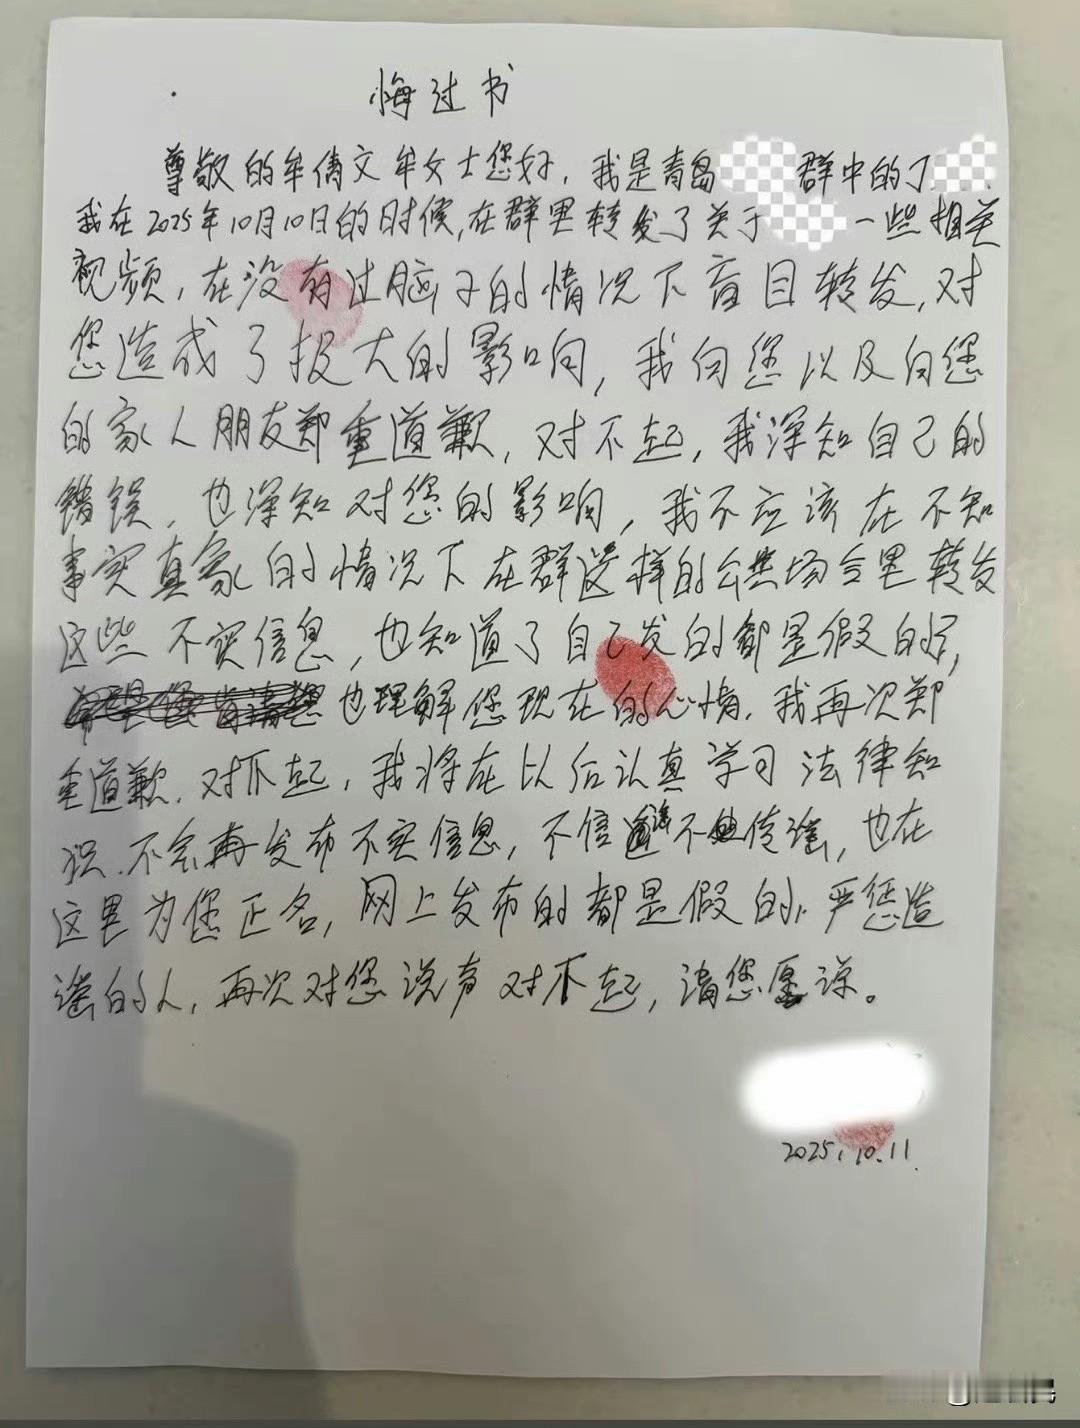 悔过书
尊敬的牟倩文牟女士您好，我是青岛 群中的丁
我在2025年10月10日的时候，在群里转发了关于 一些相关
视频，在没有过脑子的情况下盲目转发，对
您造成了极大的影响，我向您以及向您
的家人朋友郑重道歉，对不起，我深知自己的
错误，也深知对您的影响，我不应该在不知
事实真象的情况下在群这样的公共场合里转发
这些不实信息，也知道了自己发的都是假的，
也理解您现在的心情，我再次郑
重道歉，对不起，我将在以后认真学习法律知
识，不会再发布不实信息，不信谣不传谣，也在
这里为您正名，网上发布的都是假的，严惩造
谣的人，再次对您说声对不起，请您愿谅。
2025.10.11